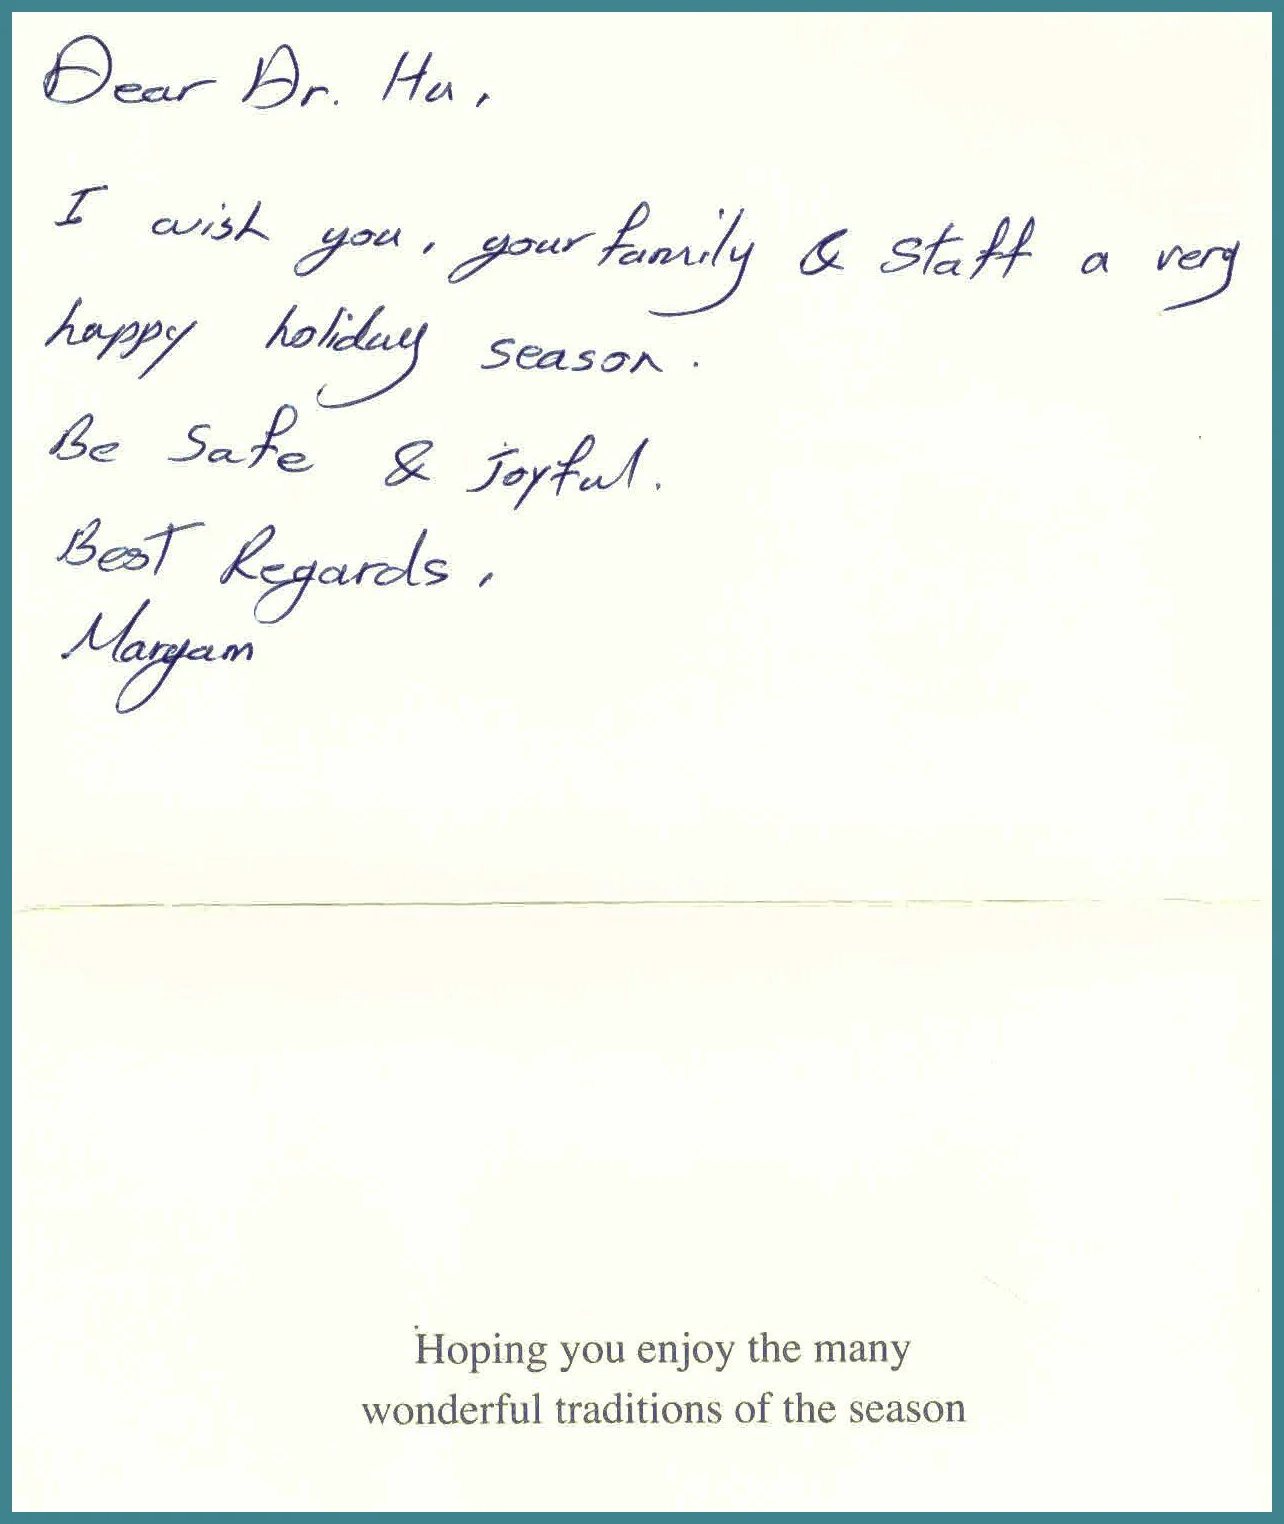 Dear Dr. Hu,
I wish you, your family & staff a very
happy holiday season.
Be Safe & joyful.
Best Regards,
Maryam
Hoping you enjoy the many
wonderful traditions of the season